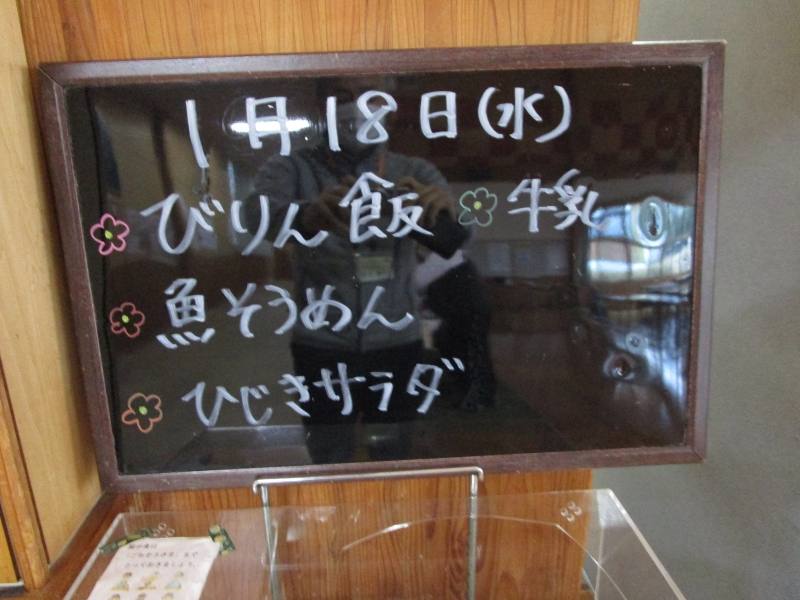 1月18日(水)
びりん飯 牛乳
魚そうめん
ひじきサラダ